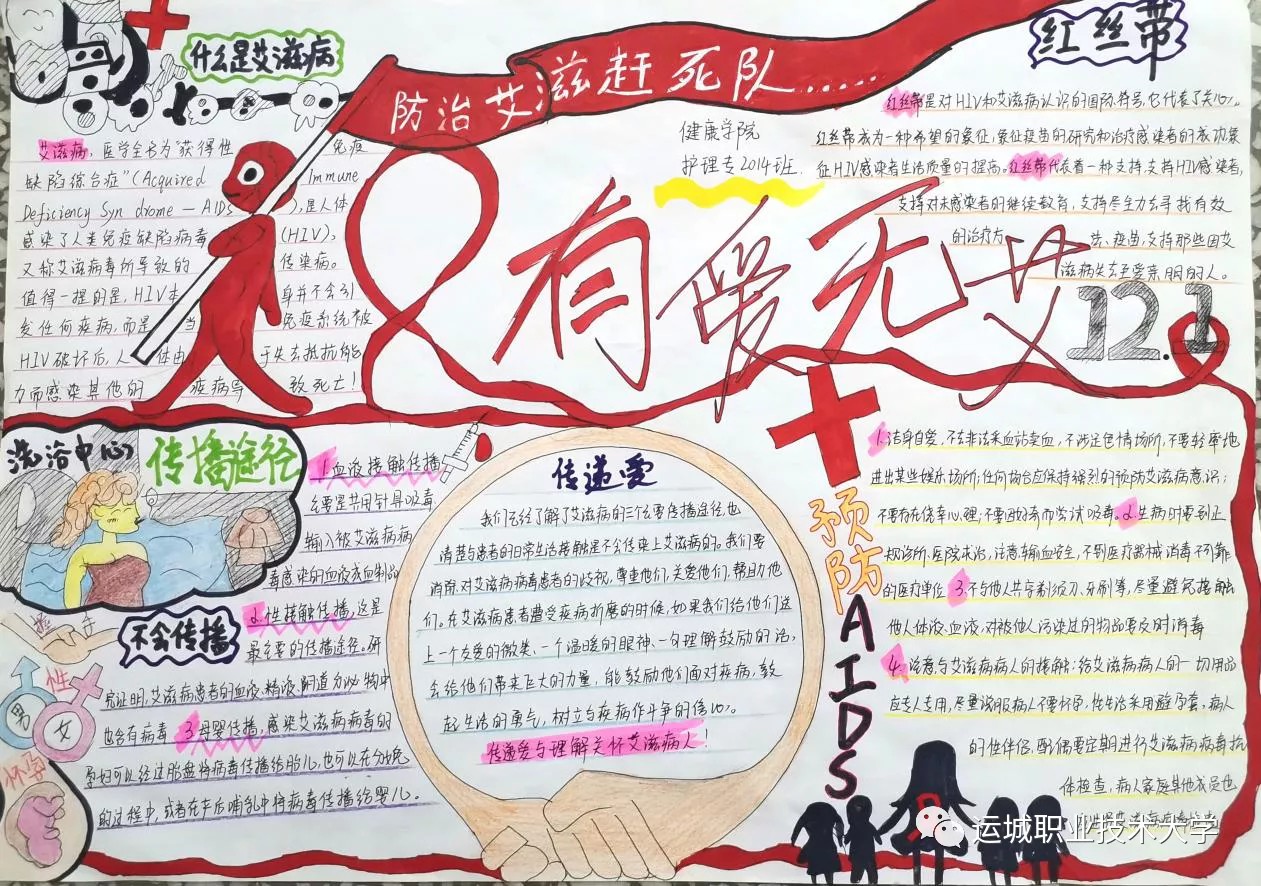 什么是艾滋病
防治艾滋赶死队......
红丝带
健康学院
护理专2014班
有爱无艾
12.1
艾滋病，医学全名为"获得性 免疫
缺陷综合症"(Acquired Immune
Deficiency Syndrome — AIDS),是人体
感染了人类免疫缺陷病毒 (HIV),
又称艾滋病毒所导致的 传染病。
值得一提的是,HIV本 身并不会引
发任何疾病,而是当 免疫系统被
HIV破坏后,人体由 于失去抵抗能
力而感染其他的 疾病导致死亡!
红丝带是对HIV和艾滋病认识的国际符号,它代表了关心。
红丝带成为一种希望的象征,象征疫苗的研究和治疗感染者的成功,象
征HIV感染者生活质量的提高。红丝带代表着一种支持,支持HIV感染者,
支持对未感染者的继续教育,支持尽全力去寻找有效
的治疗方法、疫苗,支持那些因艾
滋病失去至爱亲朋的人。
洗浴中心
传播途径
1.血液接触传播
主要是共用针具吸毒,
输入被艾滋病病
毒感染的血液或血制品
2.性接触传播,这是
最主要的传播途径。研
究证明,艾滋病患者的血液、精液、阴道分泌物中
也含有病毒 3.母婴传播,感染艾滋病病毒的
孕妇可以经过胎盘将病毒传播给胎儿,也可以在分娩
的过程中,或者在产后哺乳中将病毒传播给婴儿。
不会传播
握手
性
男
女
怀孕
传递爱
我们已经了解了艾滋病的三个主要传播途径,也
清楚与患者的日常生活接触是不会传染上艾滋病的。我们要
消除对艾滋病病毒患者的歧视,尊重他们,关爱他们,帮助他
们。在艾滋病患者遭受疾病折磨的时候,如果我们给他们送
上一个友爱的微笑、一个温暖的眼神、一句理解鼓励的话,
会给他们带来巨大的力量,能鼓励他们面对疾病,鼓
起生活的勇气,树立与疾病作斗争的信心。
传递爱与理解关怀艾滋病人!
预防AIDS
1.洁身自爱,不去非法采血站卖血,不涉足色情场所,不要轻率地
进出某些娱乐场所;任何场合应保持强烈的预防艾滋病意识;
不要存在侥幸心理;不要因好奇而尝试吸毒。2.生病时要到正
规诊所、医院求治,注意输血安全,不到医疗器械消毒不可靠
的医疗单位 3.不与他人共享剃须刀、牙刷等,尽量避免接触
他人体液、血液,对被他人污染过的物品要及时消毒
4.注意与艾滋病病人的接触:给艾滋病病人的一切用品
应专人专用,尽量说服病人不要怀孕,性生活采用避孕套,病人
的性伴侣、配偶要定期进行艾滋病病毒抗
体检查,病人家庭其他成员也
运城职业技术大学